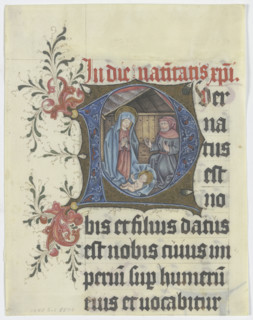 In die natiuitatis xpi.
Puer
na
tus
est
no
bis et filius datus
est nobis cuius im
periũ sup humerũ
eius et uocabitur